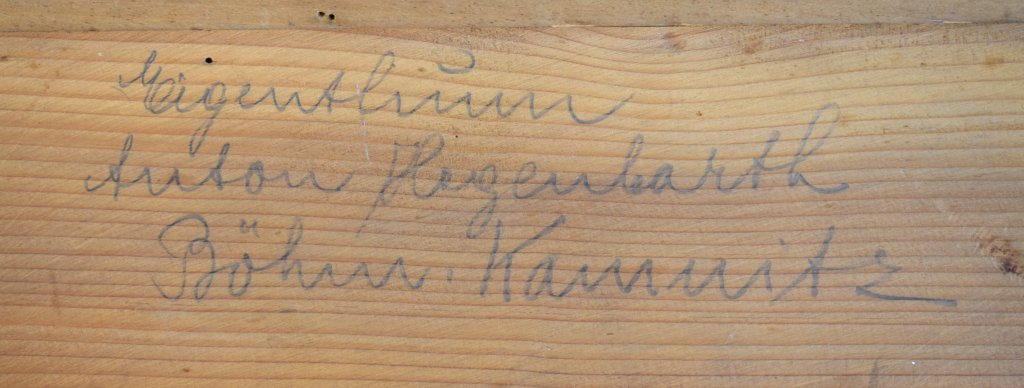 Eigenthum
Anton Hegenbarth
Böhm. Kamnitz